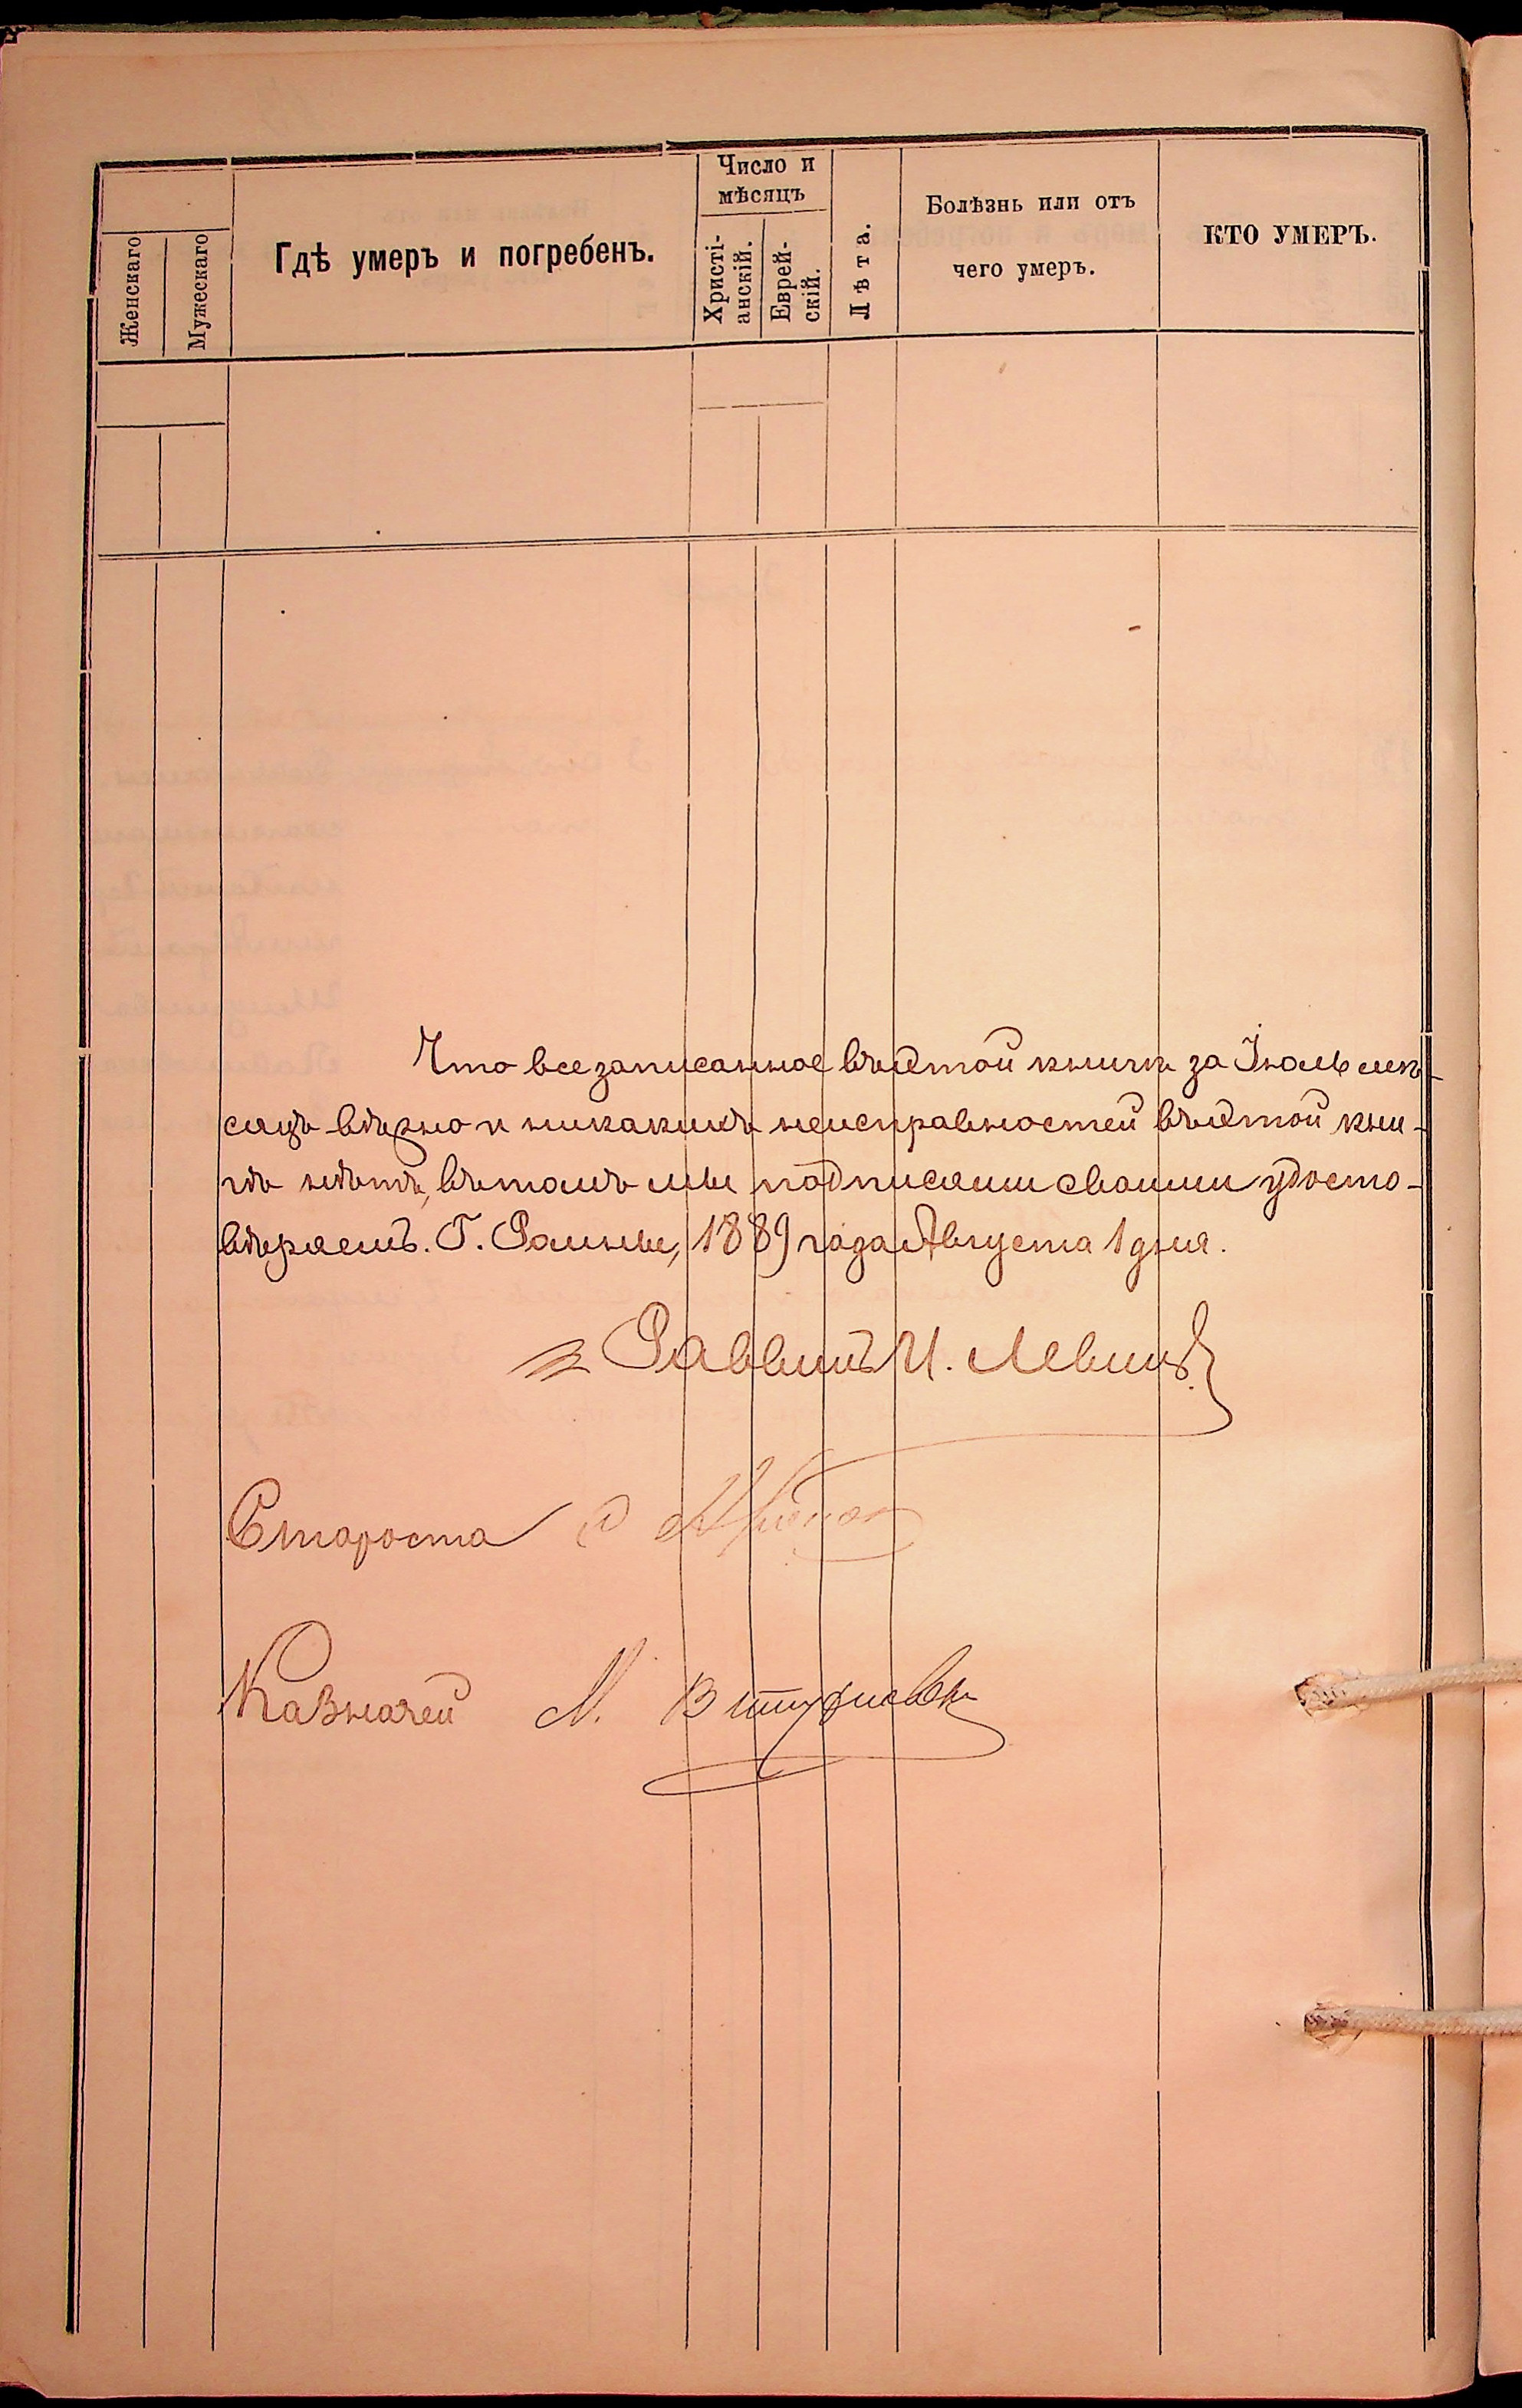 Женскаго
Мужескаго
Гдѣ умеръ и погребенъ.
Число и
мѣсяцъ
Христі-
анскій.
Еврей-
скій.
Лѣта.
Болѣзнь или отъ
чего умеръ.
КТО УМЕРЪ.
Что все записанное въ этой книгѣ за Іюль мѣ-
сяцъ вѣрно и никакихъ неисправностей въ этой кни-
гѣ нѣтъ, въ томъ мы подписями своими удосто-
вѣряемъ. Г. Ромны, 1889 года Августа 1 дня.
Раввинъ И. Левинъ
Староста
Казначей М.